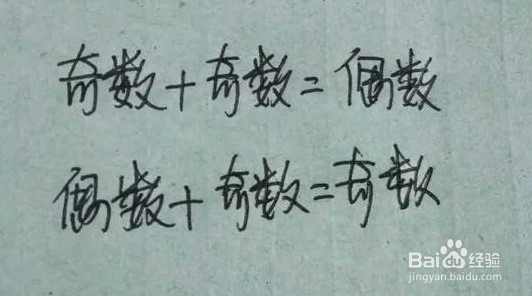 奇数+奇数=偶数
偶数+奇数=奇数
Baidu经验
jingyan.baidu.com